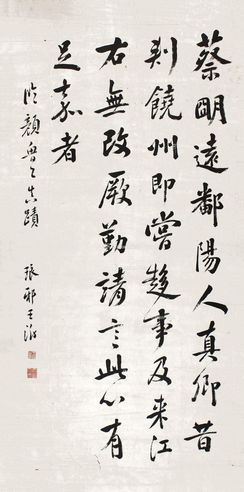 蔡明遠鄱陽人真卿昔
刺饒州即嘗趍事及来江
右無改厥勤諸言此心有
足嘉者
臨顏魯公真蹟 琅邪王